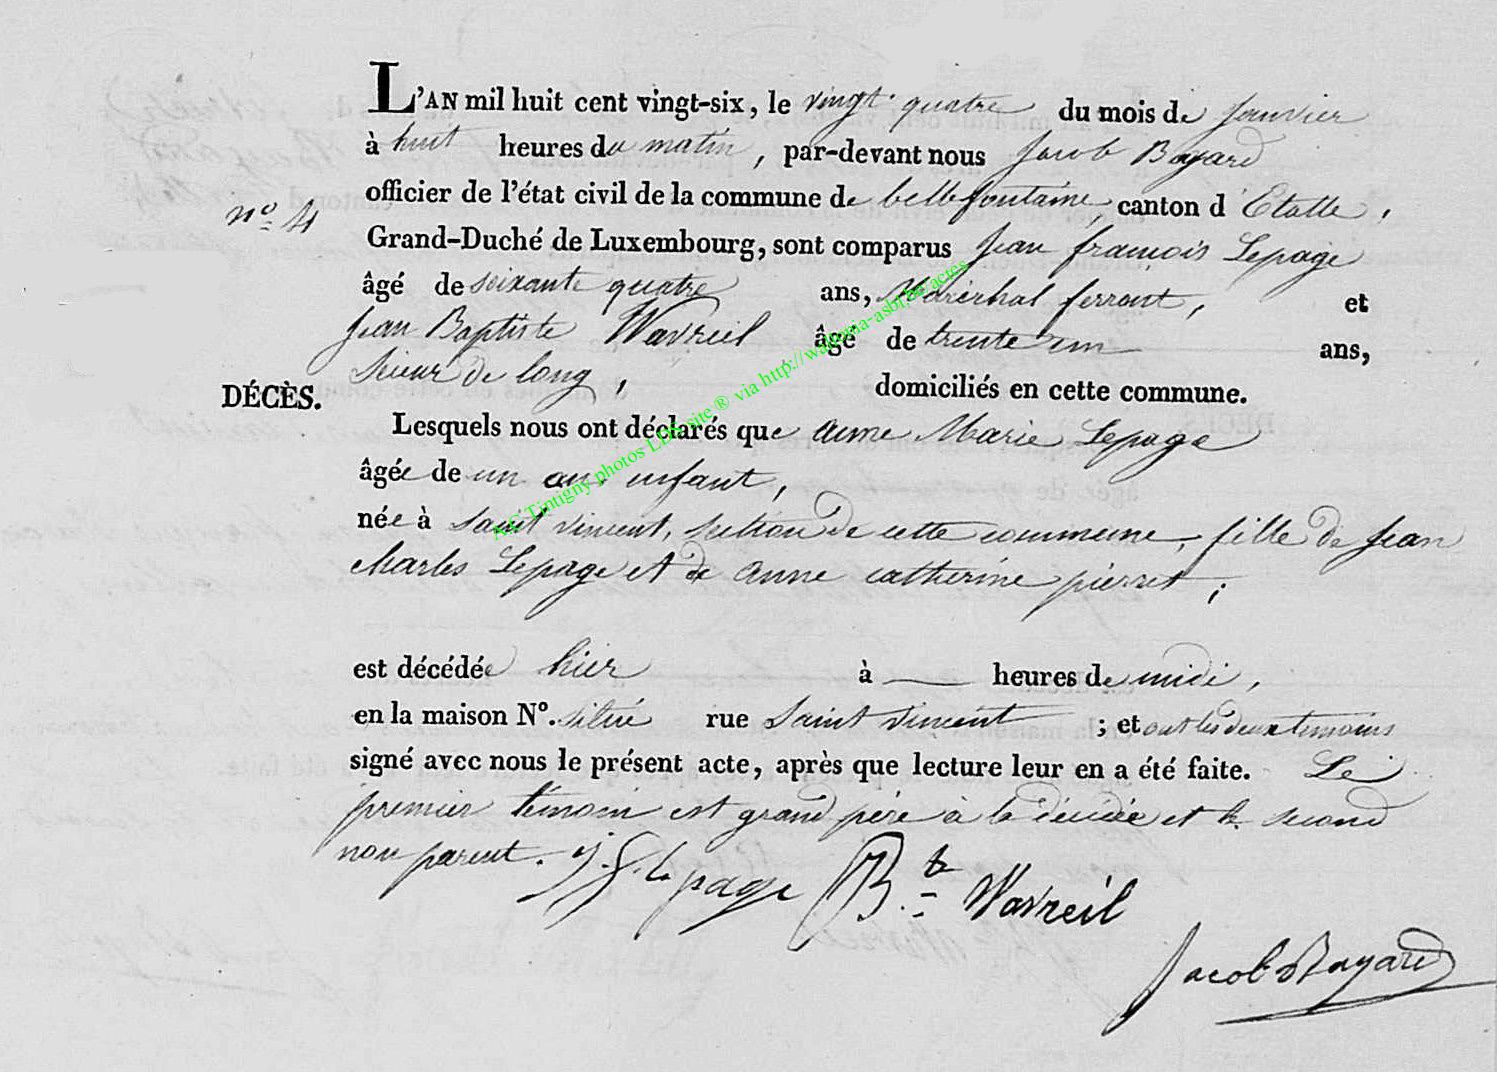 L'AN mil huit cent vingt-six, le vingt quatre du mois de janvier
à huit heures du matin, par-devant nous Jacob Bayard
officier de l'état civil de la commune de bellefontaine, canton d'Etalle,
nº 4
Grand-Duché de Luxembourg, sont comparus Jean françois Lepage
âgé de soixante quatre ans, Maréchal ferrant, et
Jean Baptiste Wavreil âgé de trente un ans,
Scieur de long, domiciliés en cette commune.
DÉCÈS.
Lesquels nous ont déclarés que anne Marie Lepage
âgée de un an enfant,
née à saint vincent, section de cette commune, fille de Jean
charles Lepage et de anne catherine pierret;
est décédée hier à — heures de midi,
en la maison Nº. situé rue saint vincent ; et ont les deux temoins
signé avec nous le présent acte, après que lecture leur en a été faite. Le
premier témoin est grand père à la décédée et le second
non parent. J. f. le page Bte Wavreil
Jacob Bayard
AC Tintigny photos LDS site ® via http://wallonia-asbl.be/actes